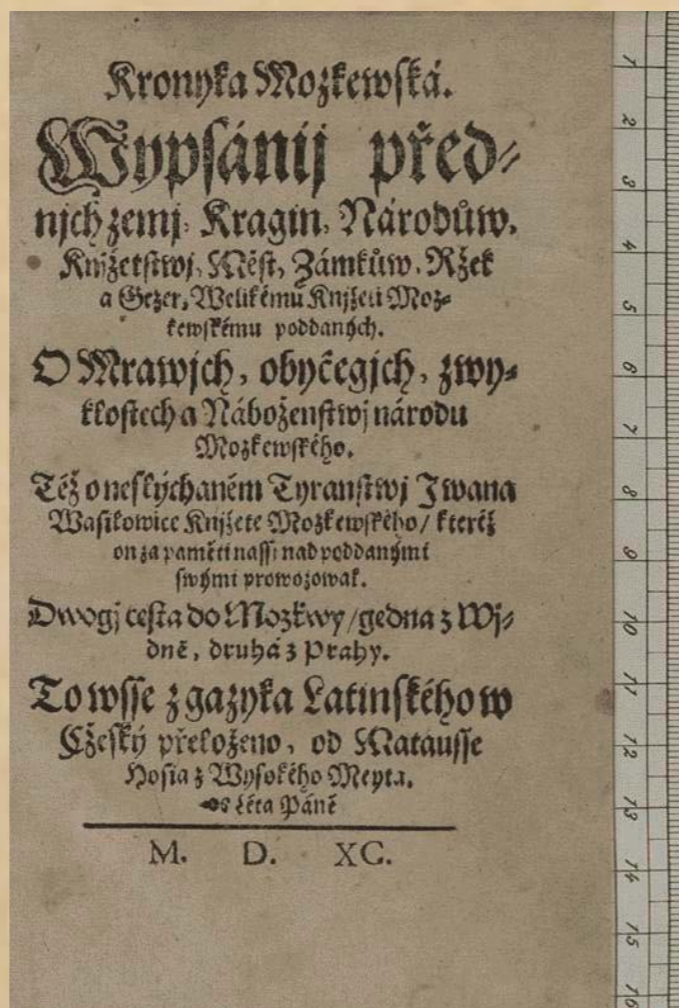 Kronyka Mozkewská.
Wypsánij před-
njch zemj, Kragin, Národůw,
Knjžetstwj, Měst, Zámkůw, Ržek
a Gezer, Welikému Knjžeti Moz-
kewskému poddaných.
O Mrawjch, obyčegjch, zwy-
klostech a Náboženstwj národu
Mozkewského.
Též o neslýchaném Tyranstwj Iwana
Wasilowice Knjžete Mozkewského/ kteréž
on za paměti nassj nad poddanými
swými prowozowal.
Dwogj cesta do Mozkwy/ gedna z Wj-
dně, druhá z Prahy.
To wsse z gazyka Latinského w
Cžeský přeloženo, od Matausse
Hosia z Wysokého Meyta.
Léta Páně
M. D. XC.
1
2
3
4
5
6
7
8
9
10
11
12
13
14
15
16